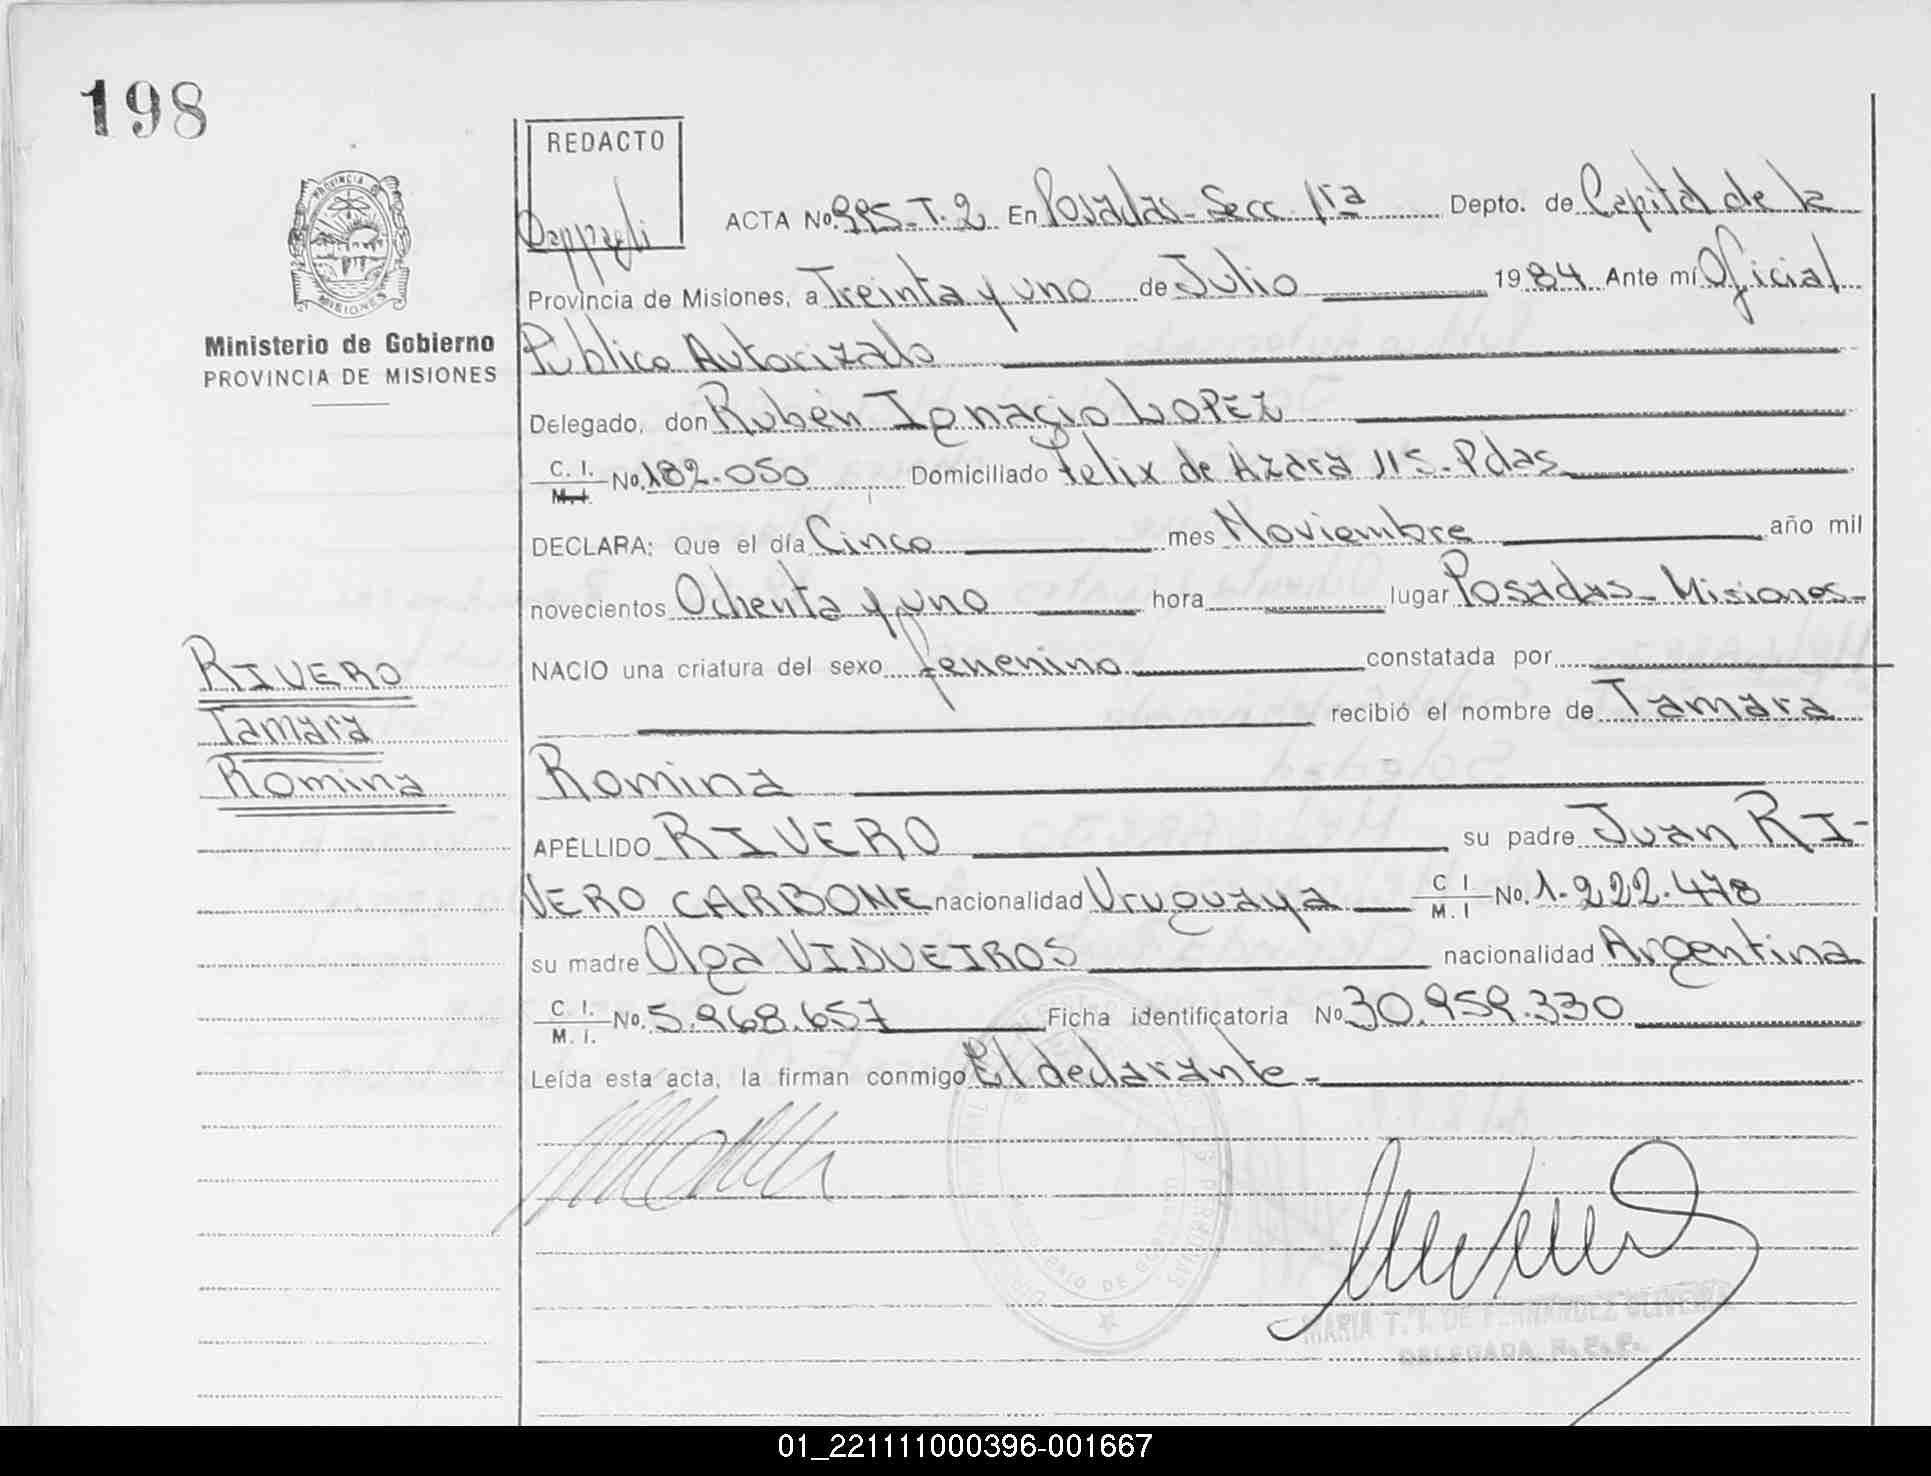 198
REDACTO
PROVINCIA DE
MISIONES
Ministerio de Gobierno
PROVINCIA DE MISIONES
ACTA No. 995-T.2 En Posadas - Secc. 1ra Depto. de Capital de la
Provincia de Misiones, a Treinta y uno de Julio 1984 Ante mí Oficial
Público Autorizado
Delegado, don Rubén Ignacio LOPEZ
C. I. M. I. No. 182.050 Domiciliado Felix de Azara 115 - Pdas
DECLARA: Que el día Cinco mes Noviembre año mil
novecientos Ochenta y uno hora lugar Posadas - Misiones -
NACIO una criatura del sexo femenino constatada por
recibió el nombre de Tamara
Romina
APELLIDO RIVERO su padre Juan RI-
VERO CARBONE nacionalidad Uruguaya C I M. I No. 1.222.478
su madre Olga VIDUEIROS nacionalidad Argentina
C. I. M. I. No. 5.968.657 Ficha identificatoria No 30.959.330
Leída esta acta, la firman conmigo El declarante -
RIVERO
Tamara
Romina
MARIA T. I. DE FERNANDEZ OLIVEIRA
DELEGADA
01_221111000396-001667